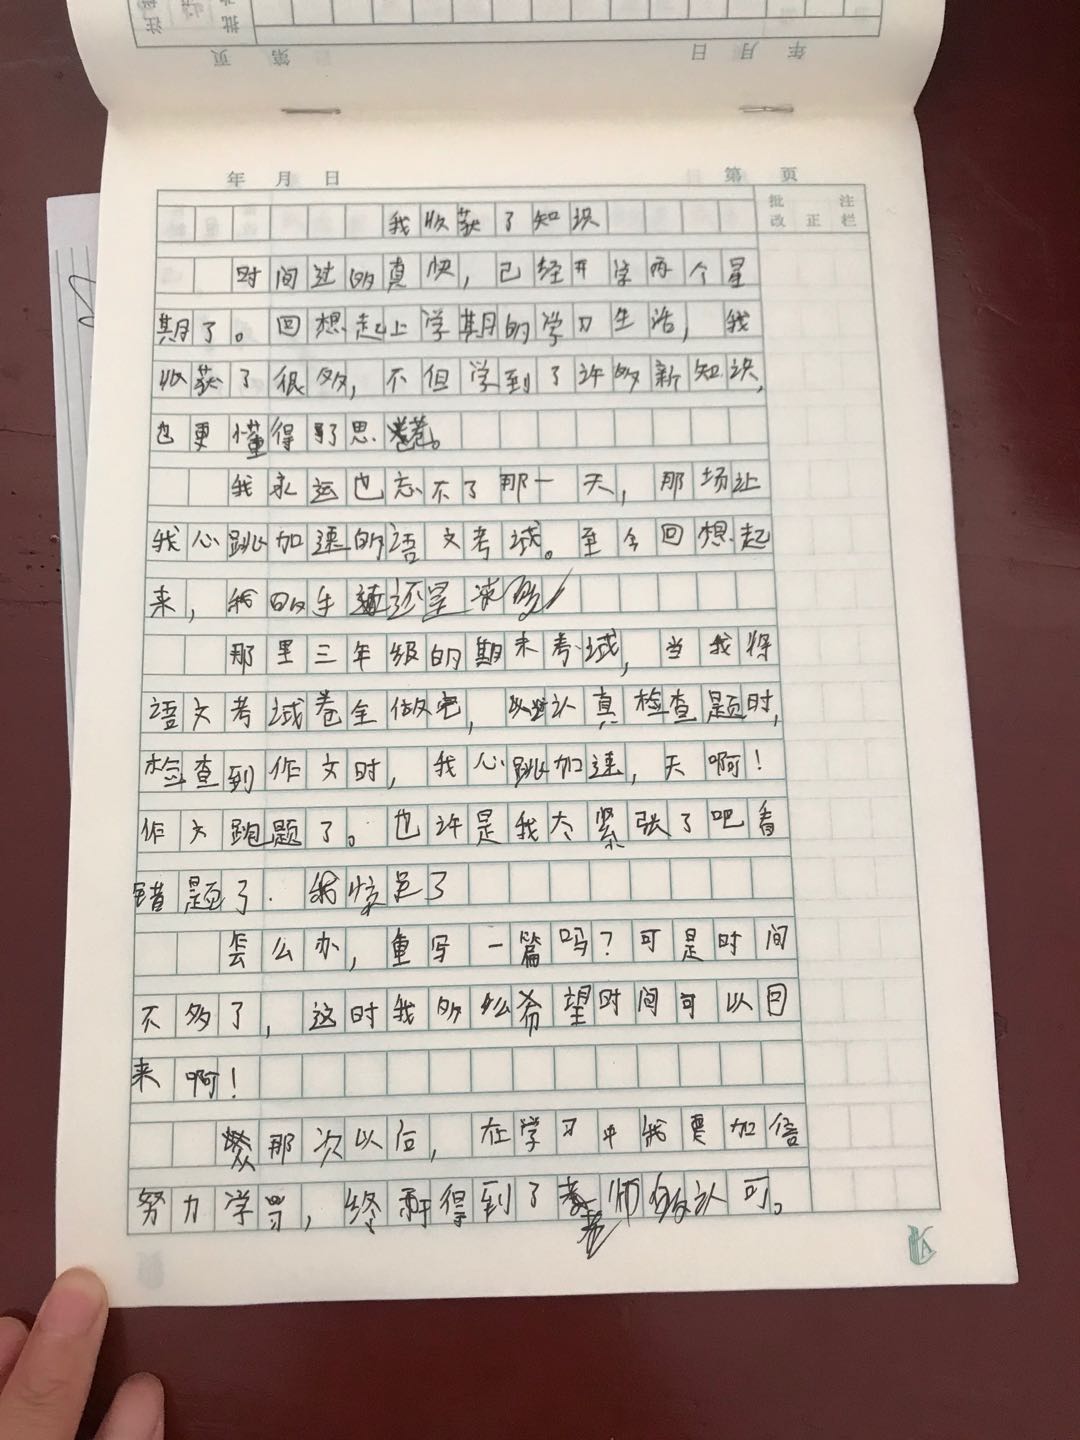 年 月 日
第 页
批 注
改 正 栏
我收获了知识
时间过的真快，已经开学两个星
期了。回想起上学期的学习生活，我
收获了很多，不但学到了许多新知识，
也更懂得了思
我永远也忘不了那一天，那场让
我心跳加速的语文考试。至今回想起
来，我的手还是
那里三年级的期末考试，当我将
语文考试卷全做完，认真检查题时，
检查到作文时，我心跳加速，天啊！
作文跑题了。也许是我太紧张了吧看
错题了．我惊呆了
怎么办，重写一篇吗？可是时间
不多了，这时我多么希望时间可以回
来啊！
那次以后，在学习中我更加倍
努力学习，终于得到了老师的认可。